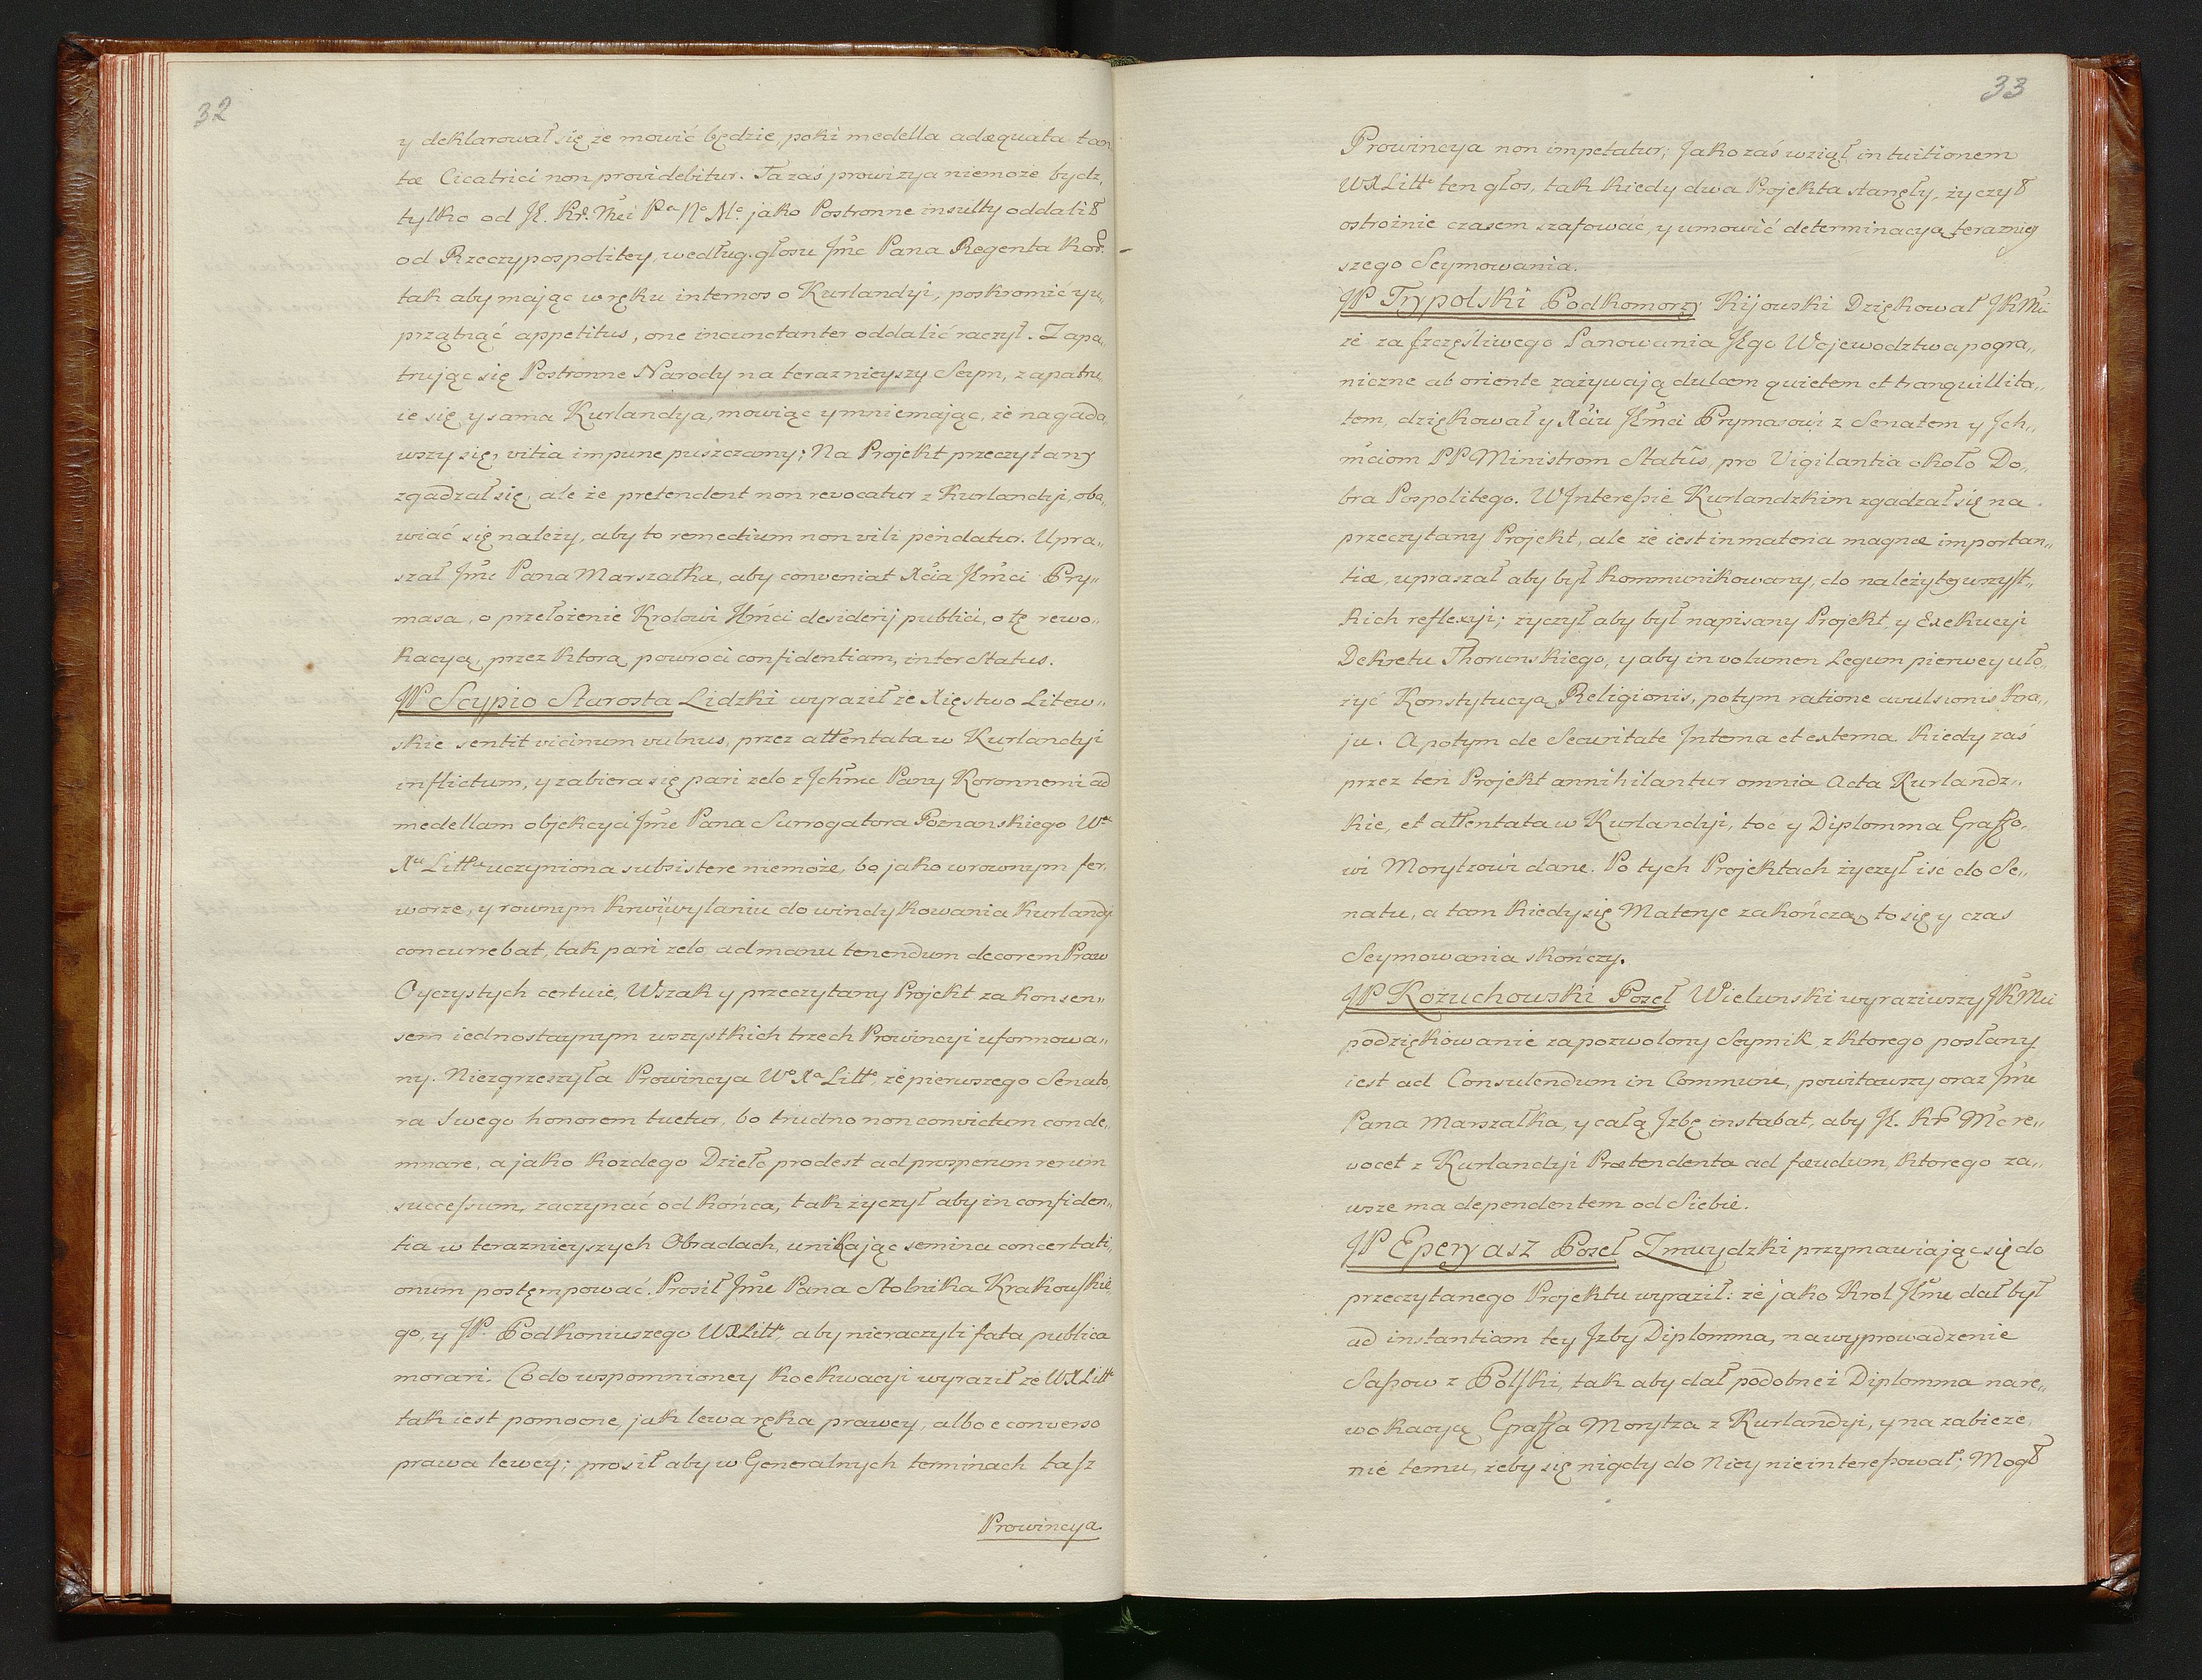 32
y deklarował się że mowić będzie, poki medella adæquata tan„
tæ Cicatrici non providebitur. Ta zaś prowizya niemoże bydz,
tylko od JK. Kr. Mći Pa No Mo jako Postronne insulty oddalił
od Rzeczypospolitey, według głosu Jmć Pana Regenta Kor.
tak aby mając w ręku internos o Kurlandyi, poskromić y u„
przątnąć appetitus, one incunctanter oddalić raczył. Zapa„
trując się Postronne Narody na teraznieyszy Seym, zapatru„
ie się y sama Kurlandya, mowiąc y mniemając, że nagada„
wszy się, vitia impune puszczamy; Na Projekt przeczytany
zgadzał się, ale że pretendent non revocatur z Kurlandyi, oba„
wiać się należy, aby to remedium non vili pendatur. Upra„
szał Jmć Pana Marszałka, aby conveniat Xcia Jmći Pry„
masa, o przełożenie Krolowi Jmći desiderij publici, o tę rewo„
kacyą, przez ktorą powroci confidentiam, inter Status.
JP Scypio Starosta Lidzki wyraził że Xięstwo Litew„
skie sentit vicinum vulnus, przez attentata w Kurlandyi
inflictum, y zabiera się pari zelo z Ichmć Pany Koronnemi ad
medellam objekcyi Jmć Pana Surrogatora Poznanskiego Wu
Xu Littu uczyniona subsistere niemoże, bo jako w rownym fer„
worze, y rownym krwi wylaniu do windykowania Kurlandyi
concurrebat, tak pari zelo ad manu tenendum decorem Praw
Oyczystych certuie, Wszak y przeczytany Projekt za konsen„
sem iednostaynym wszystkich trzech Prowincyi uformowa„
ny. Niezgrzeszyła Prowincya Wo Xa Litto, że pierwszego Senato„
ra Swego honorem tuetur, bo trudno non convictum conde„
mnare, a jako kozdego Dzieło prodest ad prosperum rerum
successum, zaczynać od końca, tak życzył aby in confiden„
tia w teraznieyszych Obradach, unikając semina concertati„
onum postęmpować. Prosił Jmć Pana Stolnika Krakowskie„
go, y JP. Podkoniuszego WXLitto, aby nieraczyli fata publica
morari. Co do wspomnioney koekwacyi wyraził że WXLitto
tak iest pomocne, jak lewa ręka prawey, albo e converso
prawa lewey; prosił aby w Generalnych terminach taſz
Prowincya
33
Prowincya non impetatur; Jako zaś wziął in tuitionem
WXLitto ten głos, tak kiedy dwa Projekta stanęły, życzył
ostrożnie czasem szafować, y umowić determinacyą terazniey
szego Seymowania.
JP Trypolski Podkomorzy Kijowski Dziękował JKMci
że za szczęśliwego Panowania JEgo Wojewodztwa pogra„
niczne ab oriente zażywają dulcem quietem et tranquillita„
tem, dziękował y Xciu Jmci Prymasowi z Senatem y Ich„
mciom PP Ministrom Statûs, pro Vigilantia około Do„
bra Pospolitego. W Interessie Kurlandzkim zgadzał się na
przeczytany Projekt, ale że iest in materia magnæ importan„
tiæ, upraszał aby był kommunikowany, do należytey wszyst„
kich reflexyi; życzył aby był napisany Projekt, y Exekucyi
Dekretu Thorunskiego, y aby in volumen Legum pierwey uło„
żyć Konstytucyą Religionis, potym ratione avulsionis kra„
ju. A potym de Securitate Interna et externa. Kiedy zaś
przez ten Projekt annihilantur omnia Acta Kurlandz„
kie, et attentata w Kurlandyi, toć y Diplomma Graffo„
wi Morytzowi dane. Po tych Projektach życzył isć do Se„
natu, a tam kiedy się Materye zakończą, to się y czas
Seymowania skończy.
JP Kożuchowski Poseł Wielunski wyraziwszy JKMci
podziękowanie za pozwolony Seymik, z ktorego posłany
iest ad Consulendum in Commune, powitawszy oraz Jmć
Pana Marszałka, y całą Izbę instabat, aby JK. Kr Mć re„
vocet z Kurlandyi Prætendenta ad fæudum, ktorego za„
wsze ma dependentem od Siebie.
JP Eperyasz Poseł Zmuydzki przymawiając się do
przeczytanego Projektu wyraził: że jako Krol Jmć dał był
ad instantiam tey Izby Diplomma, na wyprowadzenie
Sasow z Polski, tak aby dał podobneż Diplomma na re„
wokacyą Graffa Morytza z Kurlandyi, y na zabieże„
nie temu, żeby się nigdy do Niey nieinteressował; Mogł